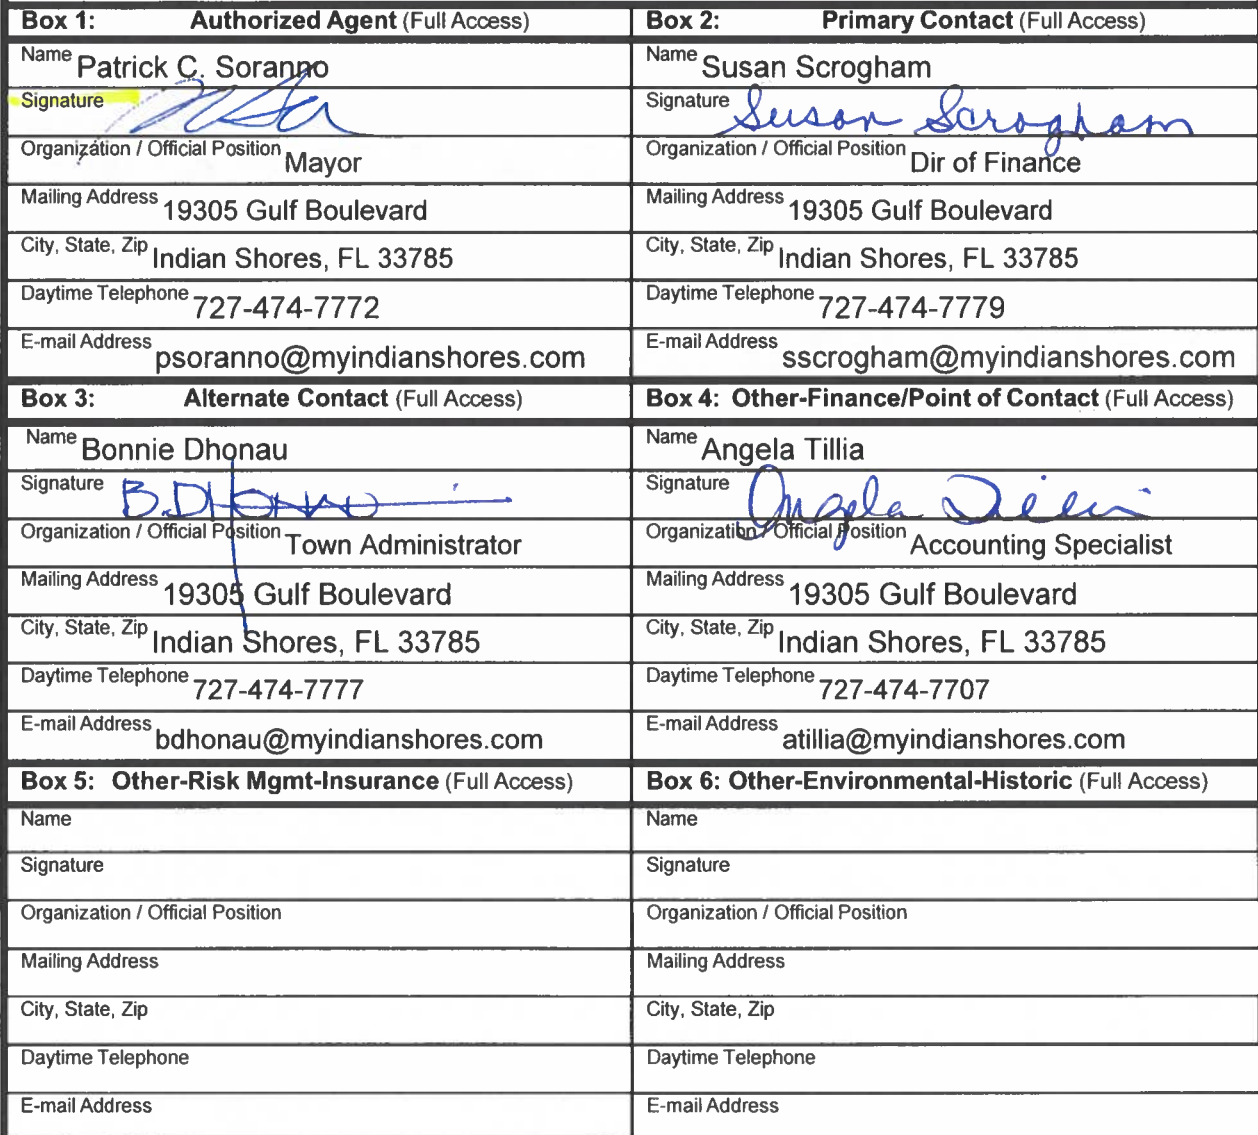 Box 1: Authorized Agent (Full Access)
Name Patrick C. Soranno
Signature
Organization / Official Position Mayor
Mailing Address 19305 Gulf Boulevard
City, State, Zip Indian Shores, FL 33785
Daytime Telephone 727-474-7772
E-mail Address psoranno@myindianshores.com
Box 2: Primary Contact (Full Access)
Name Susan Scrogham
Signature Susan Scrogham
Organization / Official Position Dir of Finance
Mailing Address 19305 Gulf Boulevard
City, State, Zip Indian Shores, FL 33785
Daytime Telephone 727-474-7779
E-mail Address sscrogham@myindianshores.com
Box 3: Alternate Contact (Full Access)
Name Bonnie Dhonau
Signature B. DHONAU
Organization / Official Position Town Administrator
Mailing Address 19305 Gulf Boulevard
City, State, Zip Indian Shores, FL 33785
Daytime Telephone 727-474-7777
E-mail Address bdhonau@myindianshores.com
Box 4: Other-Finance/Point of Contact (Full Access)
Name Angela Tillia
Signature Angela Tillia
Organization / Official Position Accounting Specialist
Mailing Address 19305 Gulf Boulevard
City, State, Zip Indian Shores, FL 33785
Daytime Telephone 727-474-7707
E-mail Address atillia@myindianshores.com
Box 5: Other-Risk Mgmt-Insurance (Full Access)
Name
Signature
Organization / Official Position
Mailing Address
City, State, Zip
Daytime Telephone
E-mail Address
Box 6: Other-Environmental-Historic (Full Access)
Name
Signature
Organization / Official Position
Mailing Address
City, State, Zip
Daytime Telephone
E-mail Address